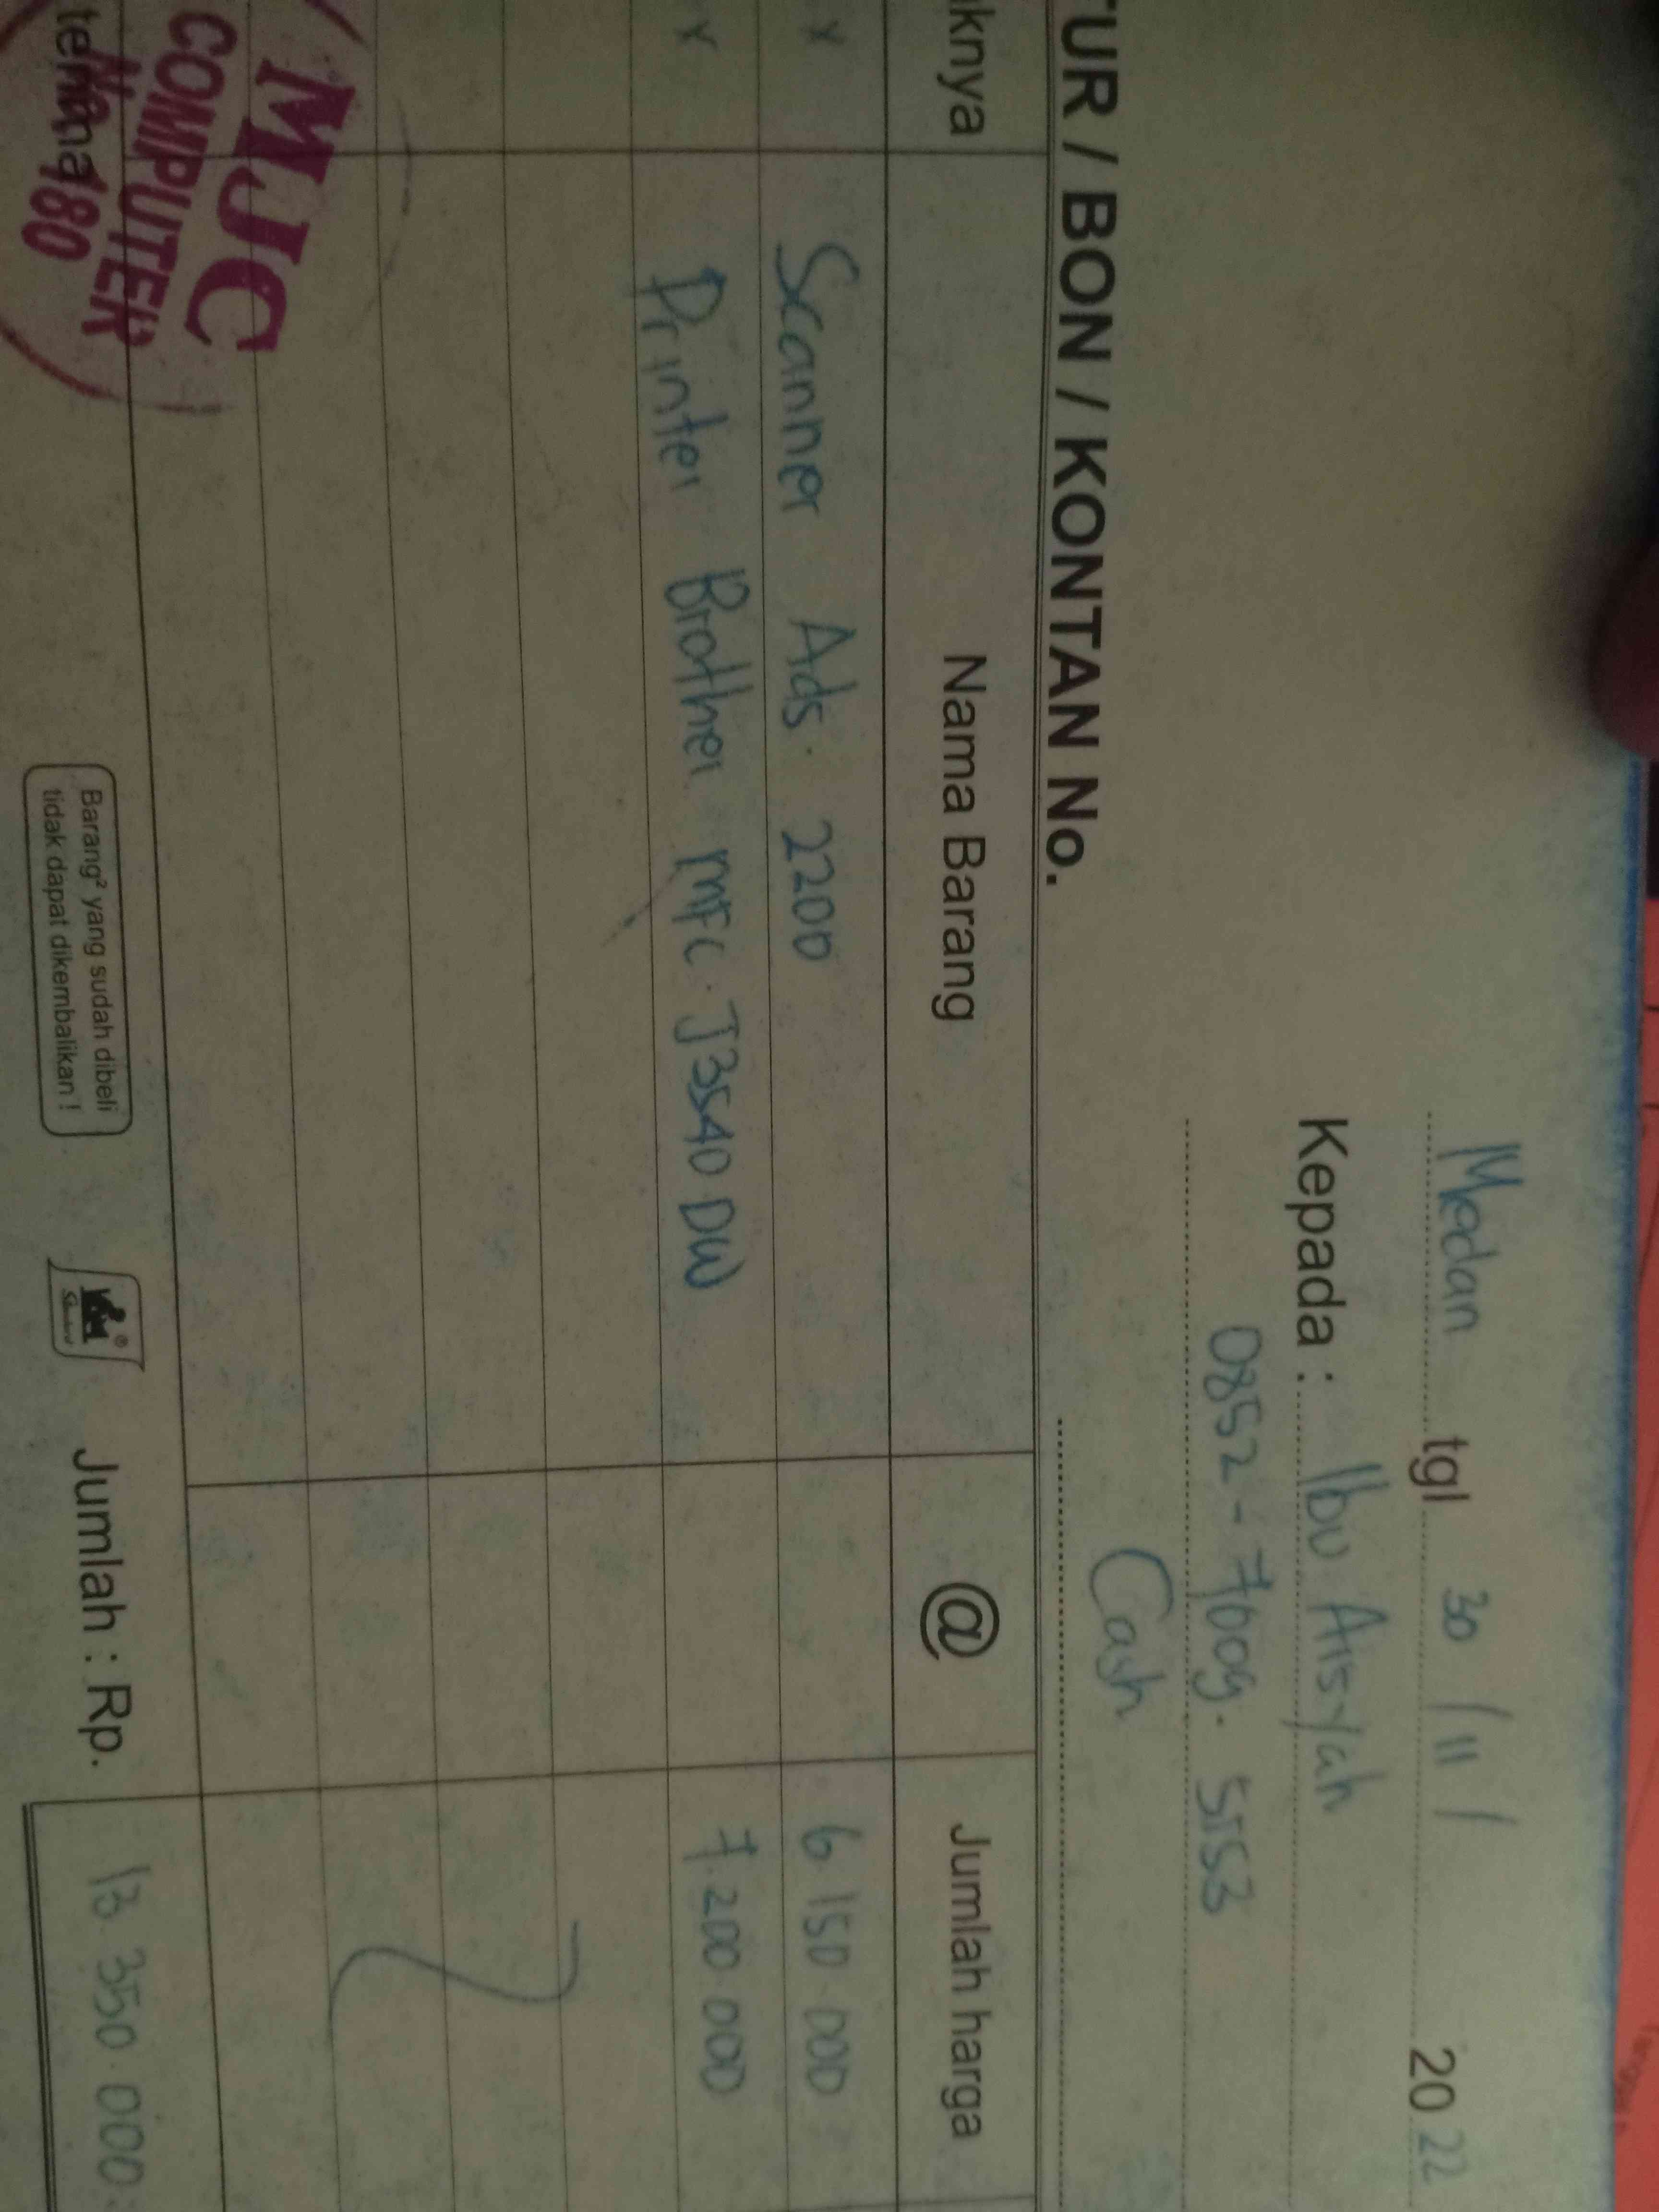 Medan tgl 30 / 11 / 2022
Kepada : Ibu Aisyah
0852-7609. 5153
Cash
TUR / BON / KONTAN No.
aknya Nama Barang @ Jumlah harga
x Scanner Ads. 2200 6.150.000
x Printer Brother MFC. J3540 DW 7.200.000
MJC
COMPUTER
No. 180
terima
Barang² yang sudah dibeli
tidak dapat dikembalikan !
Jumlah : Rp. 13.350.000